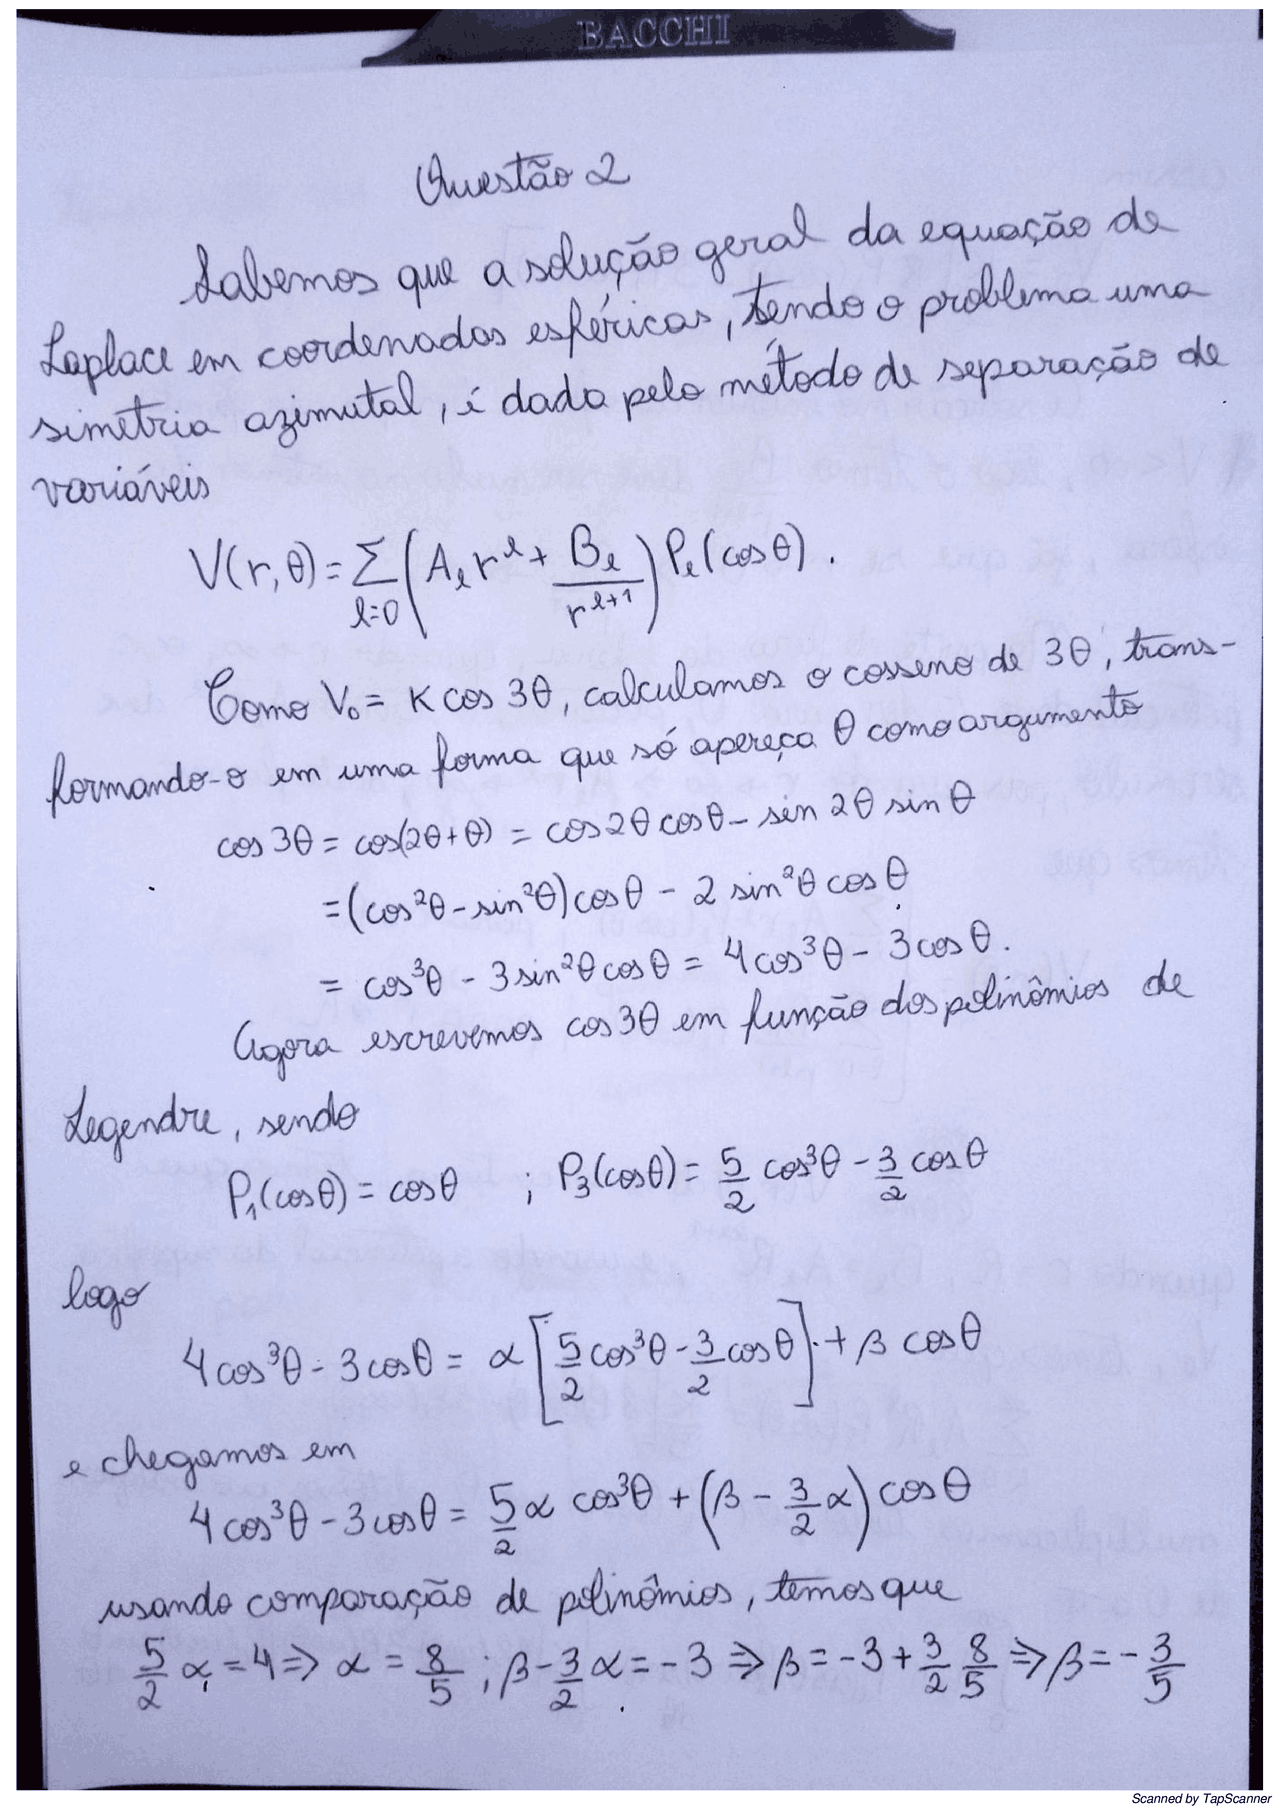 BACCHI
Questão 2
Sabemos que a solução geral da equação de
Laplace em coordenadas esféricas, tendo o problema uma
simetria azimutal, é dada pelo método de separação de
variáveis
V(r,θ) = Σ_{l=0} (A_l r^l + B_l / r^{l+1}) P_l(cosθ).
Como V₀ = K cos 3θ, calculamos o cosseno de 3θ, trans-
formando-o em uma forma que só apereça θ como argumento
cos 3θ = cos(2θ+θ) = cos2θ cosθ - sin 2θ sin θ
= (cos²θ - sin²θ) cos θ - 2 sin²θ cos θ
= cos³θ - 3 sin²θ cos θ = 4 cos³θ - 3 cos θ.
Agora escrevemos cos 3θ em função dos polinômios de
Legendre, sendo
P₁(cosθ) = cos θ ; P₃(cosθ) = 5/2 cos³θ - 3/2 cos θ
logo
4 cos³θ - 3 cos θ = α [5/2 cos³θ - 3/2 cos θ] + β cos θ
e chegamos em
4 cos³θ - 3 cos θ = 5/2 α cos³θ + (β - 3/2 α) cos θ
usando comparação de polinômios, temos que
5/2 α = 4 ⇒ α = 8/5 ; β - 3/2 α = -3 ⇒ β = -3 + 3/2 8/5 ⇒ β = -3/5
Scanned by TapScanner